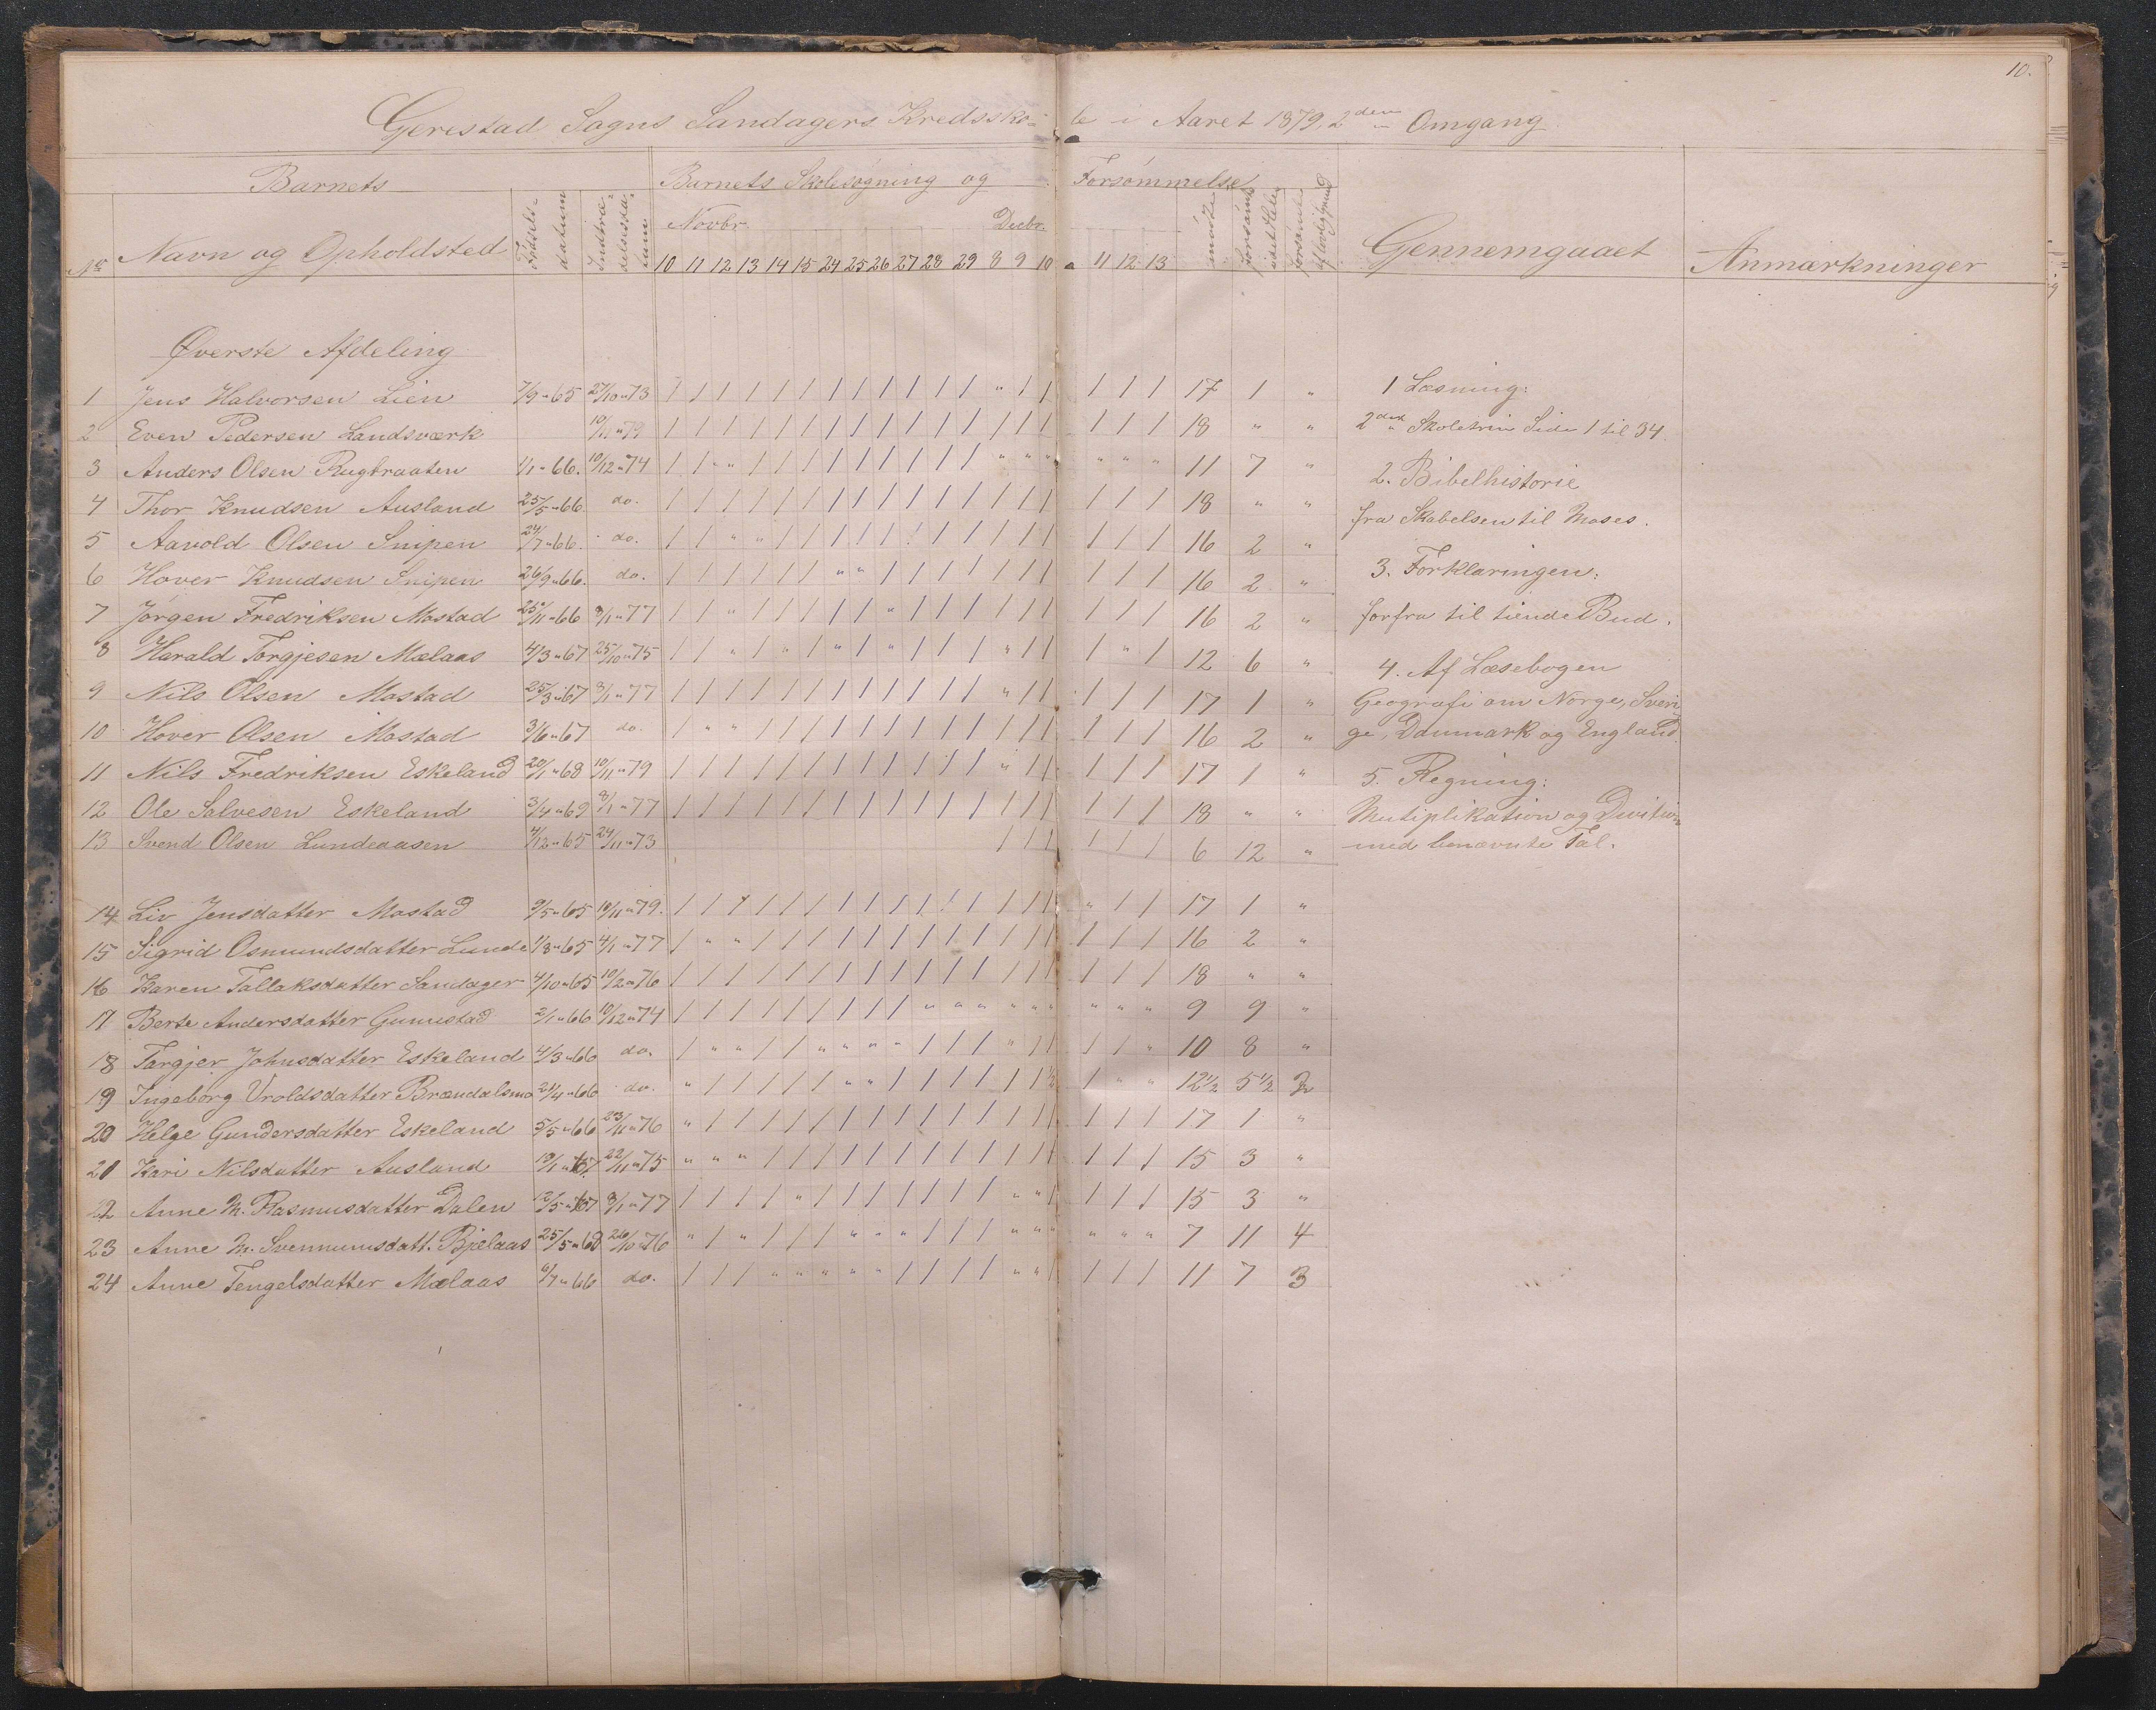 10.
Gerestad Sogns Sandagers Kredsskole i Aaret 1879, 2den Omgang.
Barnets Barnets Skolesøgning og Forsømmelse
No Navn og Opholdsted Fødselsdatum Indtrædelsesdatum Novbr. Decbr. mødte forsømte idethele forsømte af lovlig grund Gennemgaaet Anmærkninger
10 11 12 13 14 15 24 25 26 27 28 29 8 9 10 11 12 13
Øverste Afdeling
1 Jens Halvorsen Lien 7/9-65 27/10-73 / / / / / / / / / / / / " / / / / / 17 1 "
2 Even Pedersen Landsværk 10/11-79 / / / / / / / / / / / / / / / / / / 18 " "
3 Anders Olsen Rugbraaten 1/1-66. 10/12-74 / / " / / / / / / / / / " " " " " " 11 7 "
4 Thor Knudsen Ausland 25/5-66 do. / / / / / / / / / / / / / / / / / / 18 " "
5 Aavold Olsen Snipen 24/7-66. do. / / " " / / / / / / / / / / / / / / 16 2 "
6 Hover Knudsen Snipen 26/9-66. do. / / / / / / " " / / / / / / / / / / 16 2 "
7 Jørgen Fredriksen Mostad 25/11-66 3/1-77 / / " / / / / / " / / / / / / / / / 16 2 "
8 Harald Torgjesen Mælaas 4/3-67 25/10-75 / / " / " / " / " / / / " / / / " / 12 6 "
9 Nils Olsen Mostad 25/3-67 3/1-77 / / / / / / / / / / / / " / / / / / 17 1 "
10 Hover Olsen Mostad 3/6-67 do. / " " / / / / / / / / / / / / / / / 16 2 "
11 Nils Fredriksen Eskeland 20/1-68 10/11-79 / / / / / / / / / / / / " / / / / / 17 1 "
12 Ole Salvesen Eskeland 3/4-69 8/1-77 / / / / / / / / / / / / / / / / / / 18 " "
13 Svend Olsen Lundeaasen 4/12-65 24/11-73 / / / / / / 6 12 "
14 Liv Jensdatter Mostad 9/5-65 10/11-79. / / / / / / / / / / / / / / / " / / 17 1 "
15 Sigrid Osmundsdatter Lunde 1/8-65 4/1-77 / " " / / / / / / / / / / / / / / / 16 2 "
16 Karen Tallaksdatter Sandager 4/10-65 10/2-76 / / / / / / / / / / / / / / / / / / 18 " "
17 Berte Andersdatter Gunnstad 2/1-66 10/12-74 / / / / / / / / / " " " " " " " " " 9 9 "
18 Targjer Johnsdatter Eskeland 4/3-66 do. / " " / / " " " " / / / " / / / / " 10 8 "
19 Ingeborg Vroldsdatter Brændalsmo 21/4-66 do. " / / / / / " " / / / / / / 1/2 / " " 12 1/2 5 1/2 2
20 Helge Gundersdatter Eskeland 5/5-66 23/11-76 " / / / / / / / / / / / / / / / / / 17 1 "
21 Kari Nilsdatter Ausland 19/1-67. 22/11-75 " " " / / / / / / / / / / / / / / / 15 3 "
22 Anne M. Rasmusdatter Dalen 12/5-67 3/1-77 / / / / " / / / / / / / " " / / / / 15 3 "
23 Anne M. Svennumsdatt. Bjelaas 25/5-68 26/10-76 " / " / / / " " " / / / " " " " " " 7 11 4
24 Anne Tengelsdatter Mælaas 6/7-66 do. / / / " " " " " / / / / " " / / / / 11 7 3
1 Læsning:
2det Skoletrin Side 1 til 34.
2. Bibelhistorie
fra Skabelsen til Moses.
3. Forklaringen:
forfra til tiende Bud.
4. Af Læsebogen
Geografi om Norge, Sveri-
ge, Danmark og England.
5. Regning:
Mutiplikation og Division
med benævnte Tal.